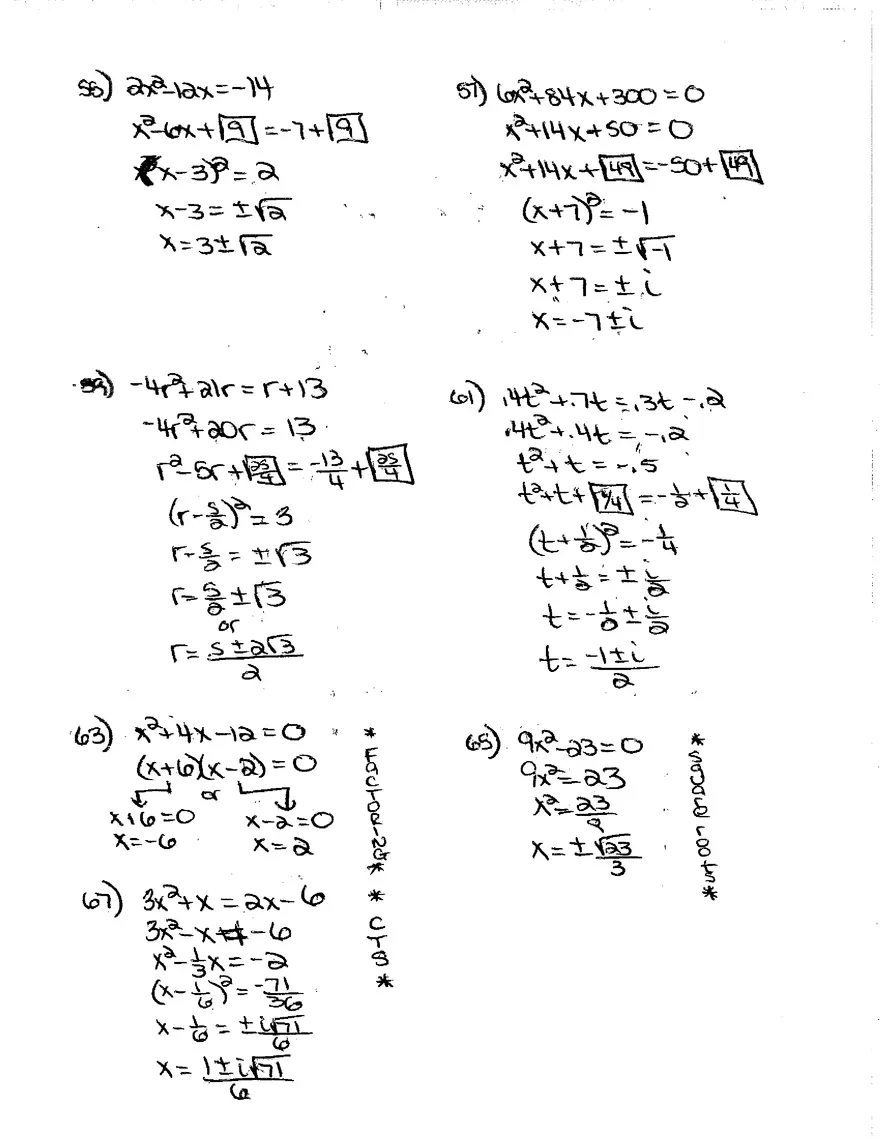 55) 2x²-12x=-14
x²-6x+[9]=-7+[9]
(x-3)²=2
x-3=±√2
x=3±√2
57) 6x²+84x+300=0
x²+14x+50=0
x²+14x+[49]=-50+[49]
(x+7)²=-1
x+7=±√-1
x+7=±i
x=-7±i
59) -4r²+21r=r+13
-4r²+20r=13
r²-5r+[25/4]=-13/4+[25/4]
(r-5/2)²=3
r-5/2=±√3
r=5/2±√3
or
r=5±2√3/2
61) .4t²+.7t=.3t-.2
.4t²+.4t=-.2
t²+t=-.5
t²+t+[1/4]=-1/2+[1/4]
(t+1/2)²=-1/4
t+1/2=±i/2
t=-1/2±i/2
t=-1±i/2
63) x²+4x-12=0
(x+6)(x-2)=0
or
x+6=0 x-2=0
x=-6 x=2
*Factor-ize*
65) 9x²-23=0
9x²=23
x²=23/9
x=±√23/3
*square roots*
67) 3x²+x=2x-6
3x²-x=-6
x²-1/3x=-2
(x-1/6)²=-71/36
x-1/6=±i√71/6
x=1±i√71/6
*CTS*